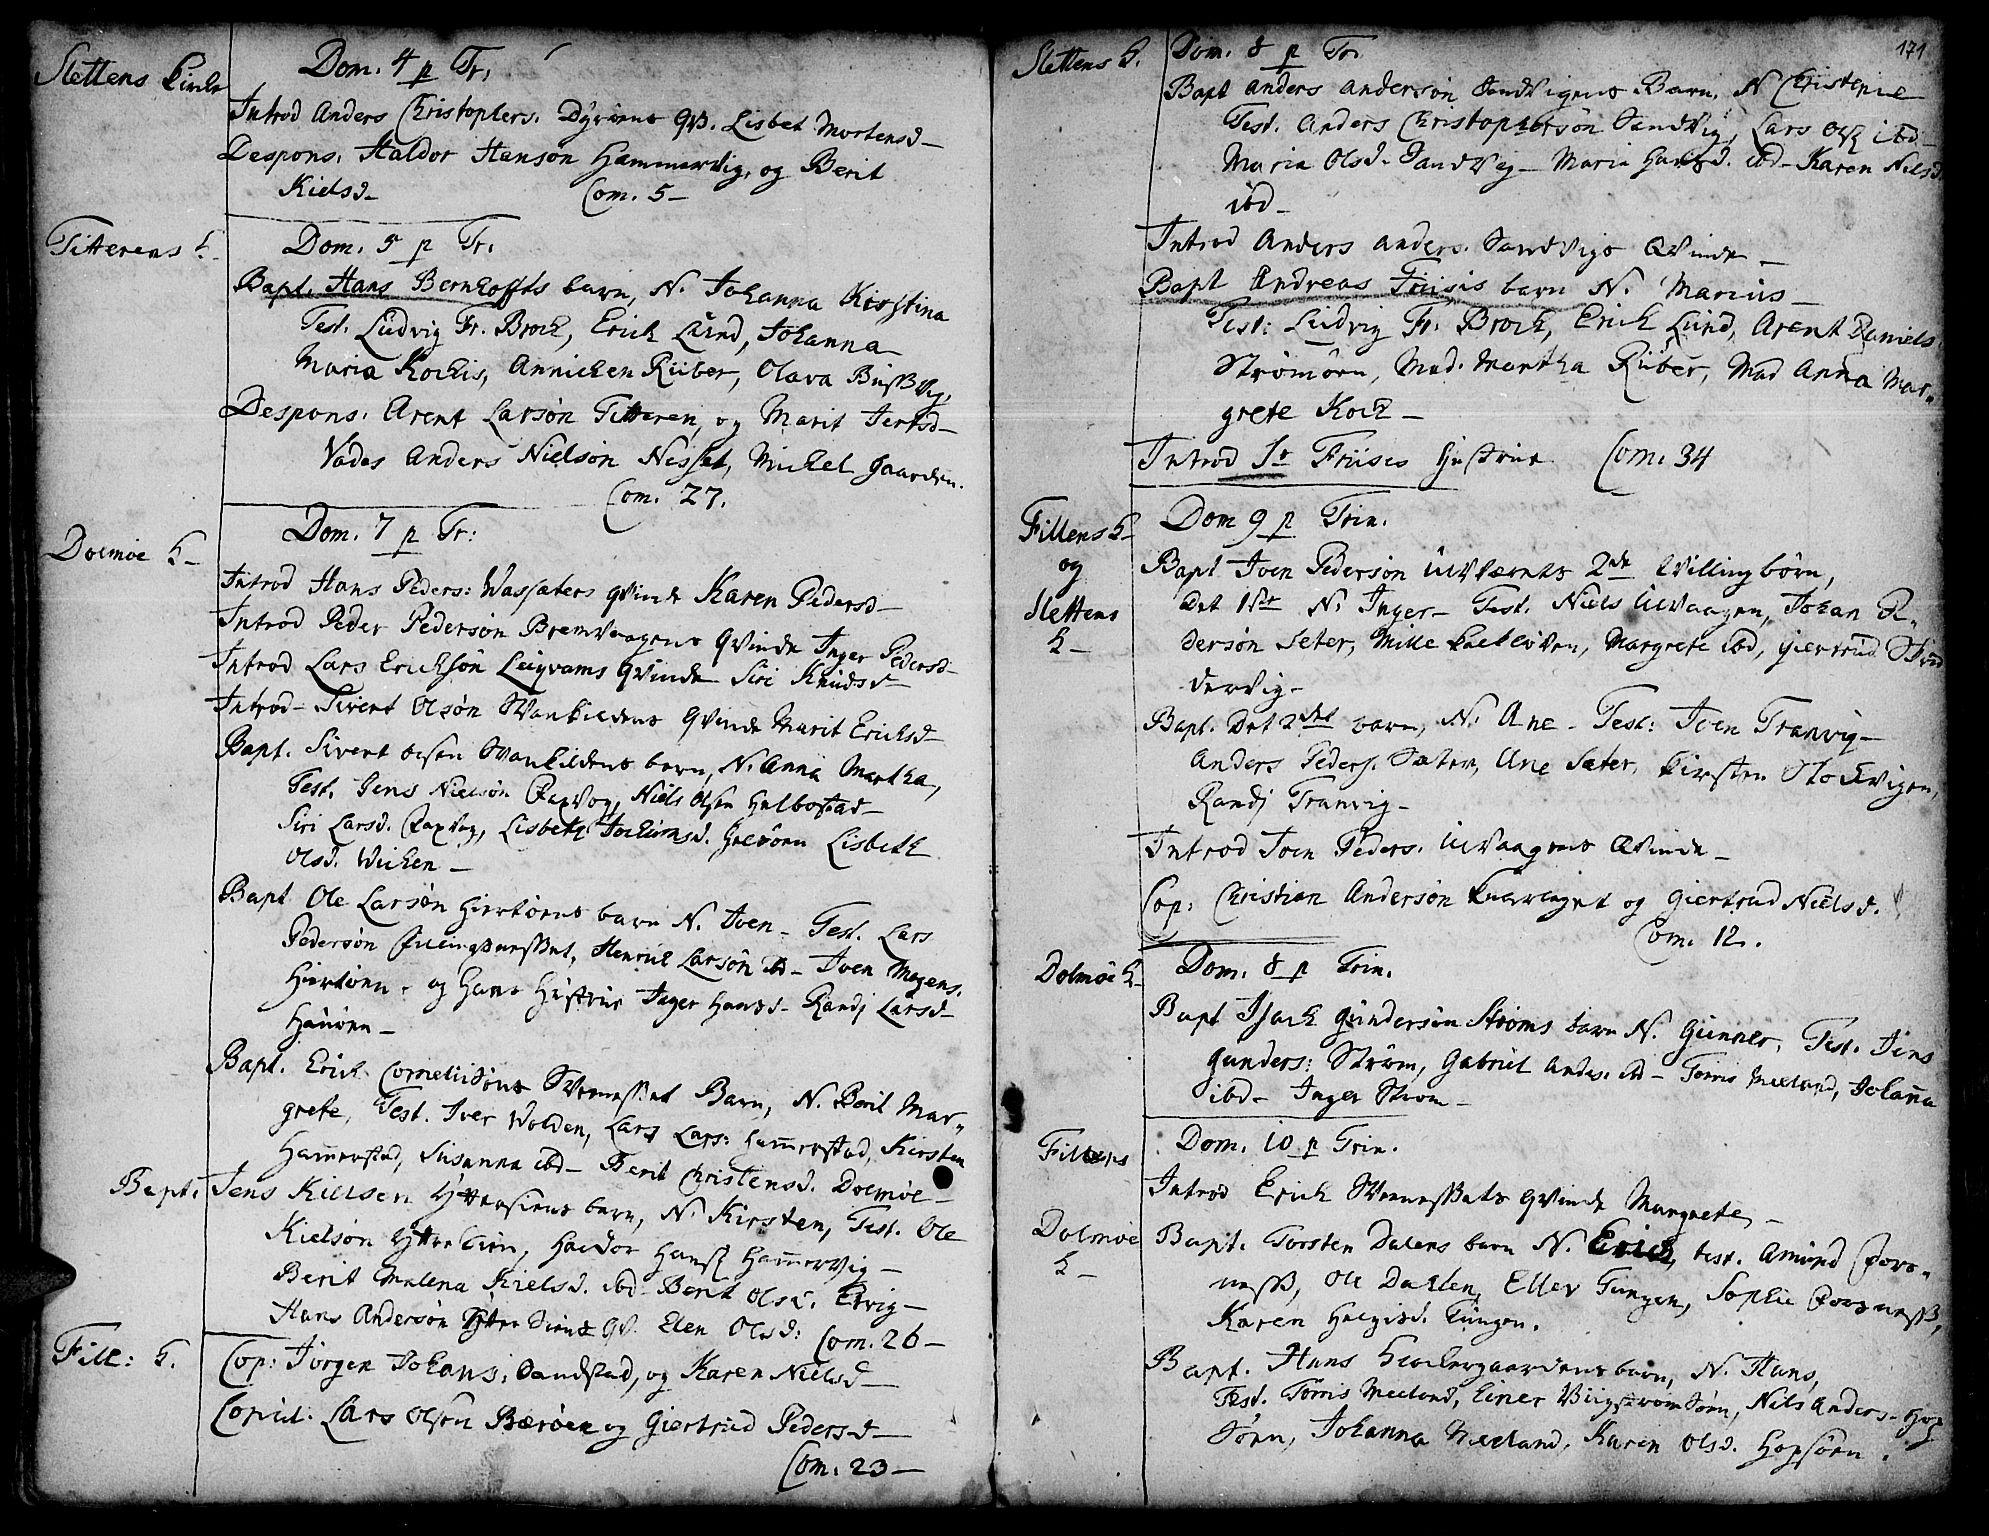 Slettens Kirke
Dom. 4 p Tr.
Introd Anders Christophers. Dyrøens qv. Lisbet Mortensd
Despons. Haldor Hanson Hammervig, og Berit
Kielsd_ Com. 5_
Titterens K.
Dom. 5 p Tr.
Bapt. Hans Bernhoffts barn, N. Johanna Kirstina
Test. Ludvig Fr. Brock, Erich Lund, Johanna
Maria Kockis, Annichen Rüber, Olava
Despons. Arent Larsøn Titteren, og Marit Jertsd_
Vades Anders Nielsøn Nesset, Michel Gaarden.
Com. 27.
Dolmøe K_
Dom. 7 p Tr:
Introd Hans Peders: Wassæters qvinde Karen Pedersd_
Introd Peder Pedersøn Bremvaagens qvinde Inger Pedersd_
Introd Lars Ericksøn Leiqvams qvinde Siri Knudsd
Introd_ Sivert Olsøn qvinde Marit Ericksd_
Bapt. Sivert olsen barn, N. Anna Martha,
Test. Jens Nielsøn Niels Olsen Hulbostad_
Siri Larsd. Lisbeth Jochumsd. Lisbeth
Olsd. Wichen_
Bapt Ole Larsøn Hiertøens barn N. Joen_ Test. Lars
Pedersøn Henrich Larsøn ibd_ Joen Mogens.
Hiertøen_ og hans Hustrue Inger Hansd_ Randj Larsd_
Bapt. Erich Corneliisøns barn, N. Berit Mar„
grete, Test. Iver Wolden, Lars Lars: Hammerstad, Kirsten
Hammerstad, Susanna ibd_ Berit Christensd. Dolmøe_
Bapt. Jens Kielsen barn, N. Kirsten, Test. Ole
Kielsøn Haldor Hans: Hammervig_
Berit Malena Kielsd. ibd_ Berit Olsd.
Hans Andersøn qv. Elen Olsd: Com. 26_
Fill: K.
Cop: Jørgen Johans. Sandstad, og Karen Nielsd_
Copul. Lars Olsøn Bærøen og Giertrud Pedersd_
Com. 23_
171
Slettens K.
Dom. 8 p Tr.
Bapt Anders Andersøn Sandvigens Barn, N Christenie
Test. Anders Christophersøn Sandvig, Lars Ols: ibd_
Maria Olsd. Sandvig_ Maria Hansd. ibd_ Karen Nilsd
ibd_
Introd Anders Anders. Sandvigs Qvinde_
Bapt Andreas Friisis barn N. Marius_
Test: Ludvig Fr. Brock, Erich Lund, Arent Daniels.
Strømøen, Mad. Martha Rüber, Mad Anna Mar„
grete Kock_
Introd Sr Friises Hustrue Com. 34
Fillens K_
og
Slettens
K_
Dom 9 p Trin.
Bapt Joen Pedersøn 2de Tvillingbørn,
Det 1ste N. Inger_ Test. Niels Ulvaagen, Johan Pe„
dersøn Seter, Mille Margrete ibd, Giertrud
dervig_
Bapt. Det 2det barn, N. Ane_ Test: Joen Tranvig_
Anders Peders. Sæter, Ane Sæter, Kirsten Stockvigen,
Randj Tranvig_
Introd Joen Peders. Ulvaagens Qvinde_
Cop: Christian Andersøn og Giertrud Nielsd.
Com. 12.
Dolmøe K_
Dom. 8 p Trin.
Bapt Isach Gundersøn Strøms barn N. Gunner, Test. Jens
Gunders: Strøm, Gabriel Anders. ibd_ Tørris Meeland, Johanna
ibd_ Inger Strøm_
Fillens
Dom. 10 p Trin.
Introd Erich qvinde Margrete_
Dolmøe
K_
Bapt. Torsten Dalens barn N. Erich, test. Amund
Ole Dallen, Ellev Tungen, Sophie
Karen Helgisd. Tungen.
Bapt. Hans barn, N. Hans,
Test. Tørris Meeland, Einer Nils Anders. Hop„
søen, Johanna Meeland, Karen Olsd. Hopsøen.